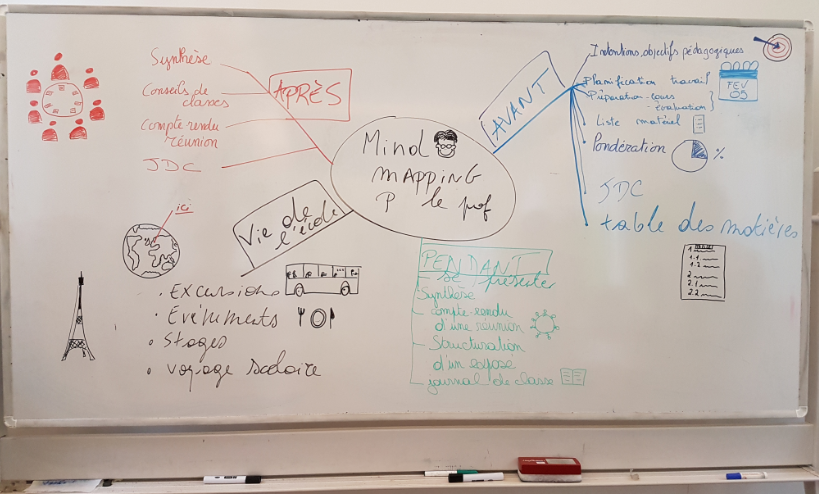 Mind
MAPPING
P le prof
AVANT
Intentions, objectifs pédagogiques
Planification travail
Préparation-cours
-évaluation
FEV
Liste matériel
Pondération
%
JDC
table des matières
1.
1.1
1.2
2
2.1
2.2
PENDANT
se présenter
Synthèse
compte-rendu
d'une réunion
Structuration
d'un exposé
journal de classe
Vie de
l'école
ici
• EXCURSIONS
• ÉVÉNEMENTS
• Stages
• voyage scolaire
APRÈS
Synthèse
Conseils de
classes
Compte-rendu
réunion
JDC